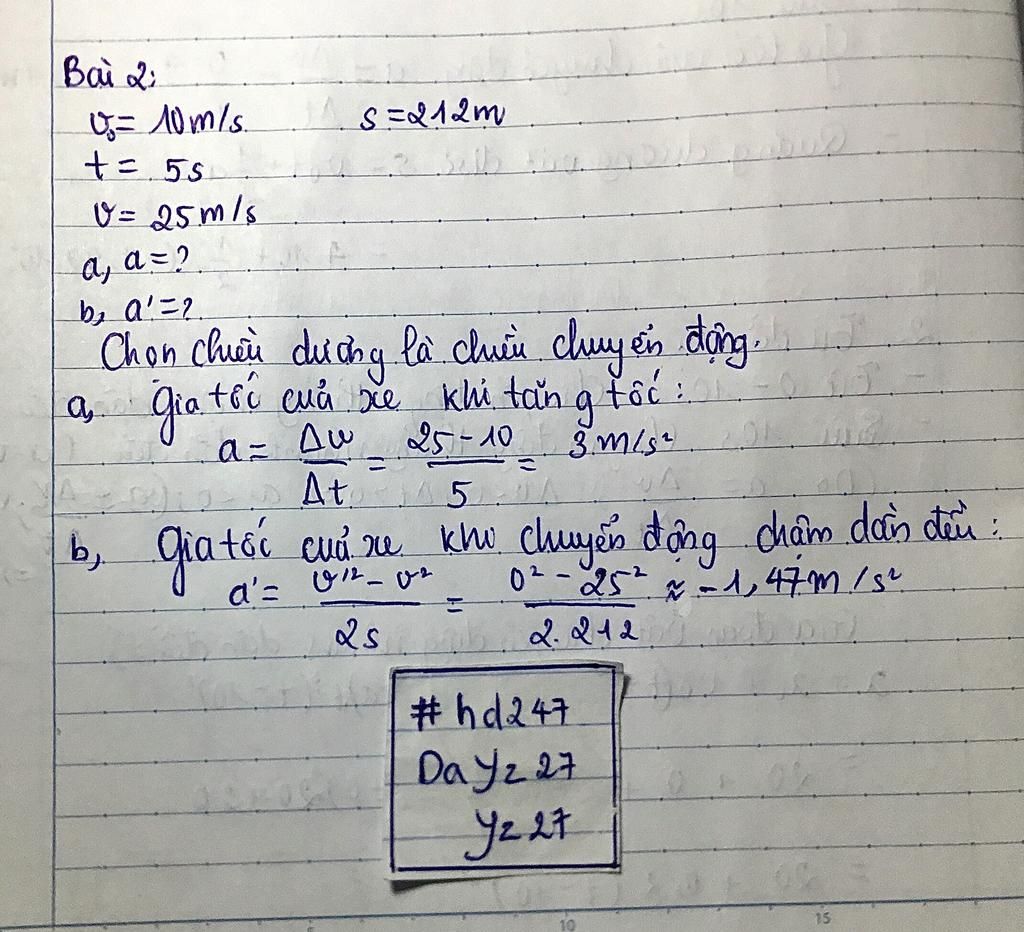 Bài 2:
v₀ = 10m/s. s = 212m
t = 5s
v = 25m/s
a, a = ?
b, a' = ?
Chọn chiều dương là chiều chuyển động.
a, Gia tốc của xe khi tăng tốc:
a = Δv/Δt = 25-10/5 = 3 m/s²
b, Gia tốc của xe khi chuyển động chậm dần đều:
a' = v'² - v²/2s = 0² - 25²/2.212 ≈ -1,47m/s²
#hd247
DaYz27
Yz27
10
15